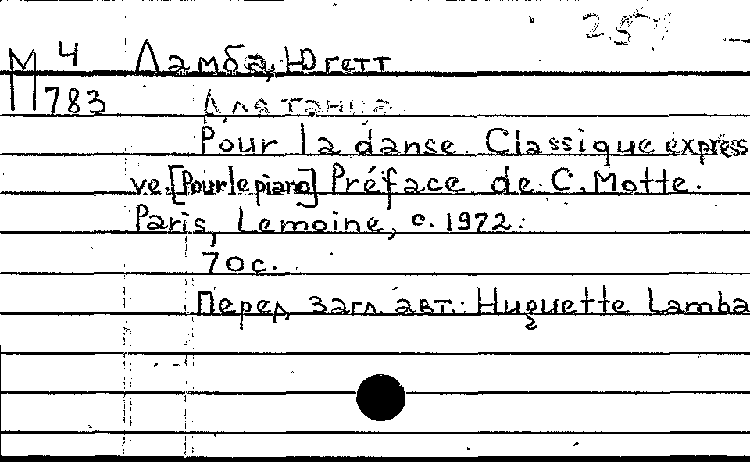 257
М 4 Ламба, Югетт
783 Для танца
Pour la danse. Classique express
ve. [Pour le piano] Préface de C. Motte.
Paris, Lemoine, c. 1972.
70 с.
Перед загл. авт.: Huguette Lamba